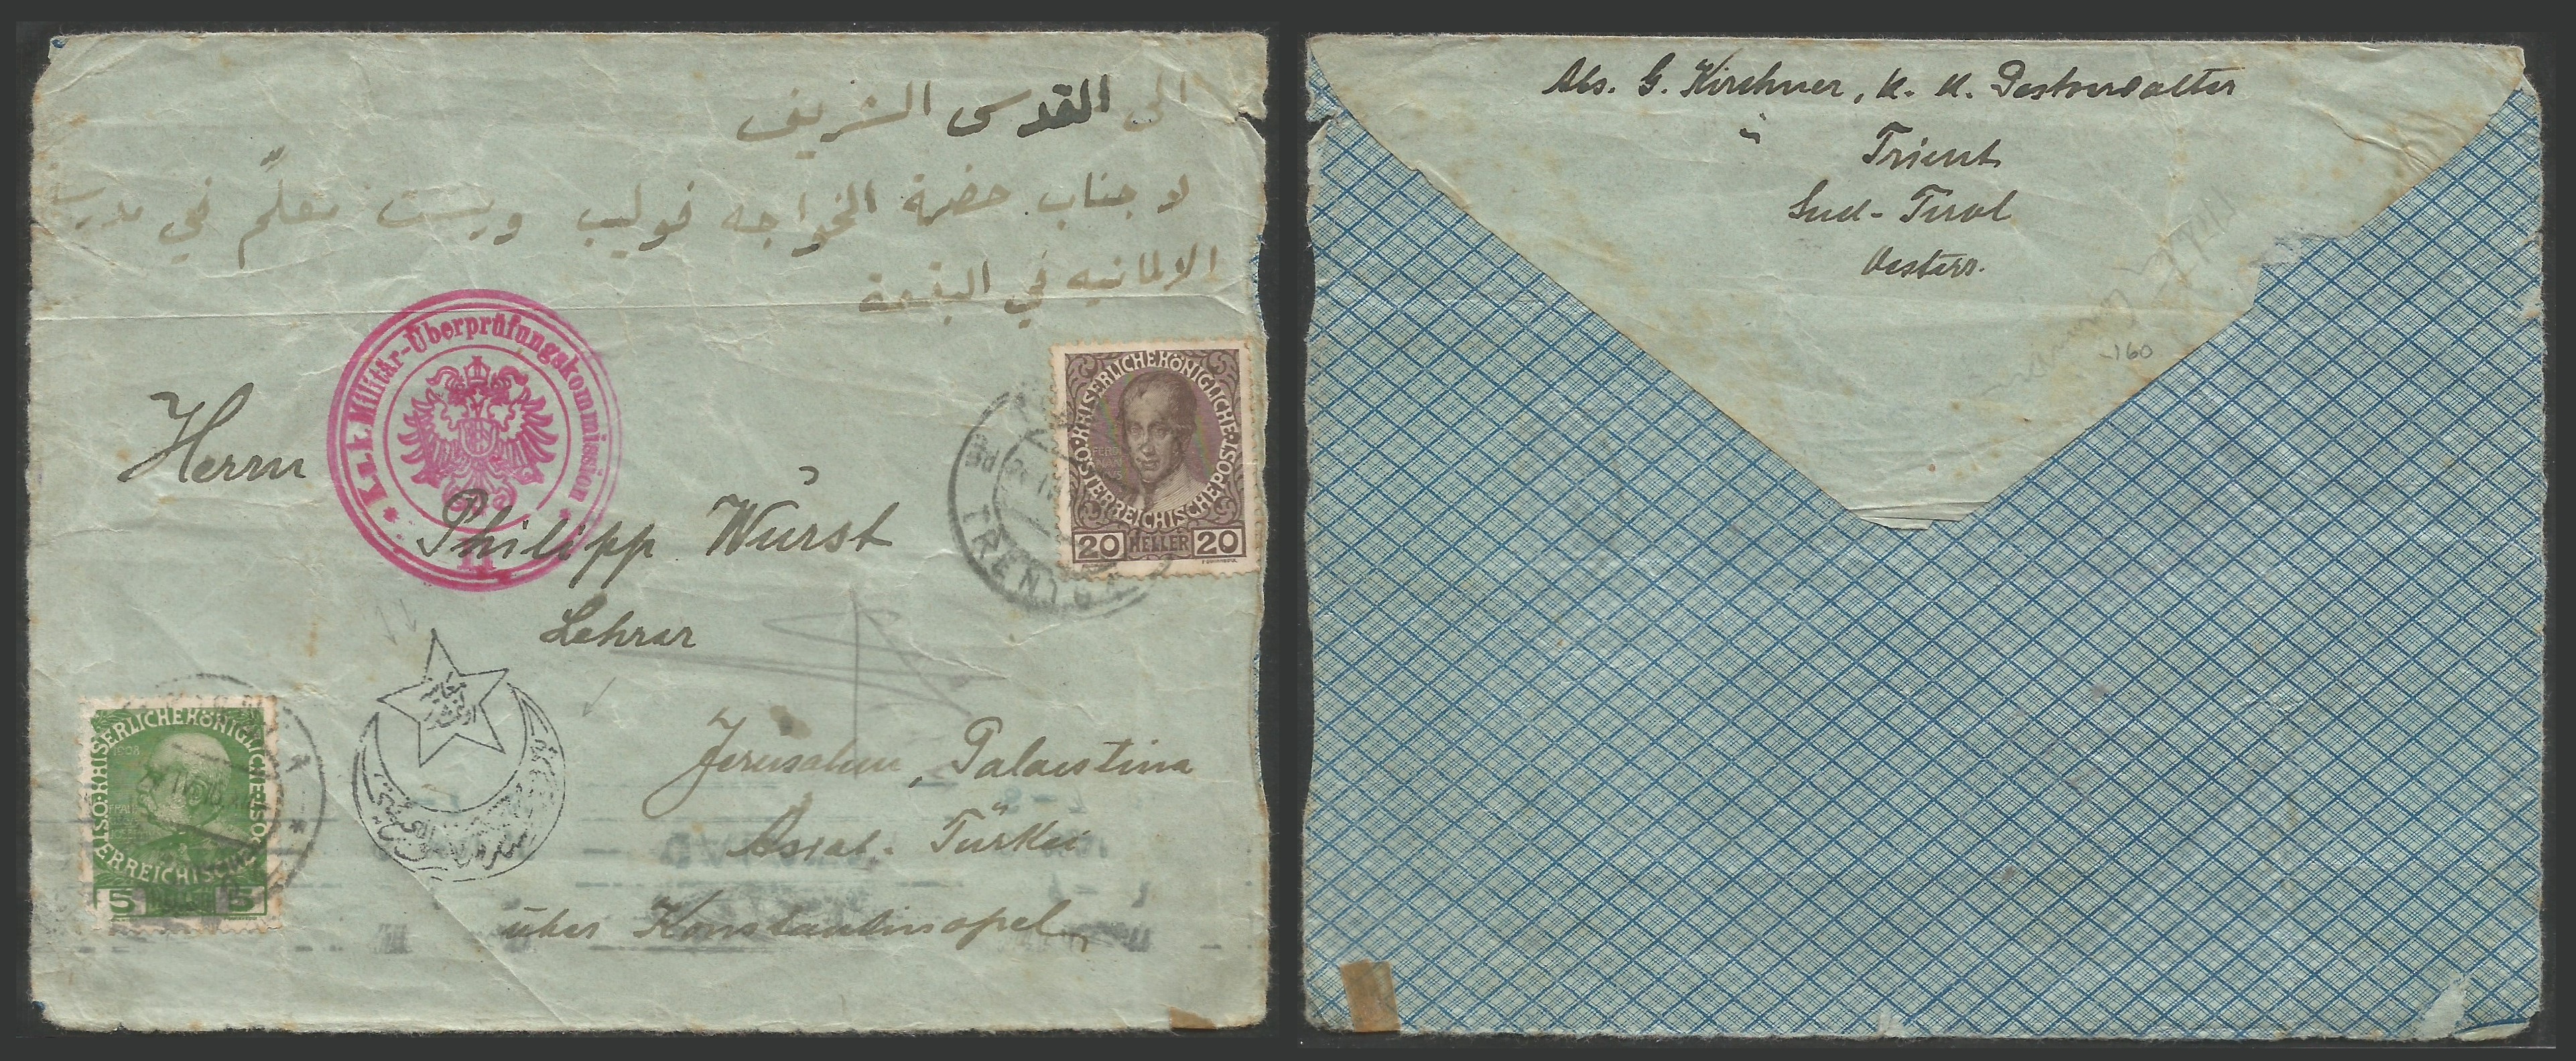 الى القدس الشريف
لا جناب حضرة الخواجه فوليب ويست معلّم في مدرسة
الالمانيه في البقعة
* K. u. k. Militär-Überprüfungskommission *
11
Herrn
Philipp Wurst
Lehrer
Jerusalem, Palaestina
Asiat. Türkei
über Konstantinopel
KAISERLICHE KÖNIGLICHE ÖSTERREICHISCHE POST
FERDINAND
20 HELLER 20
TRENTO
KAISERLICHE KÖNIGLICHE ÖSTERREICHISCHE POST
1908
5 HELLER 5
Abs. G. Kirchner, k. k. Postverwalter
Trient
Süd-Tirol
Oesterr.
160